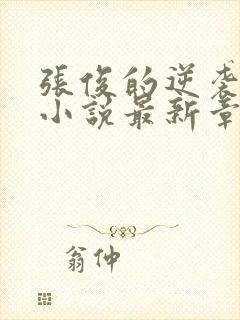 張俊的逆袭
小說最新章
翁仲